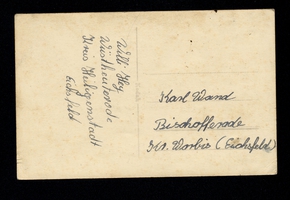 Willi Hey
Wüstheuterode
Kreis Heiligenstadt
Eichsfeld
Karl Wand
Bischofferode
Kr. Worbis (Eichsfeld)